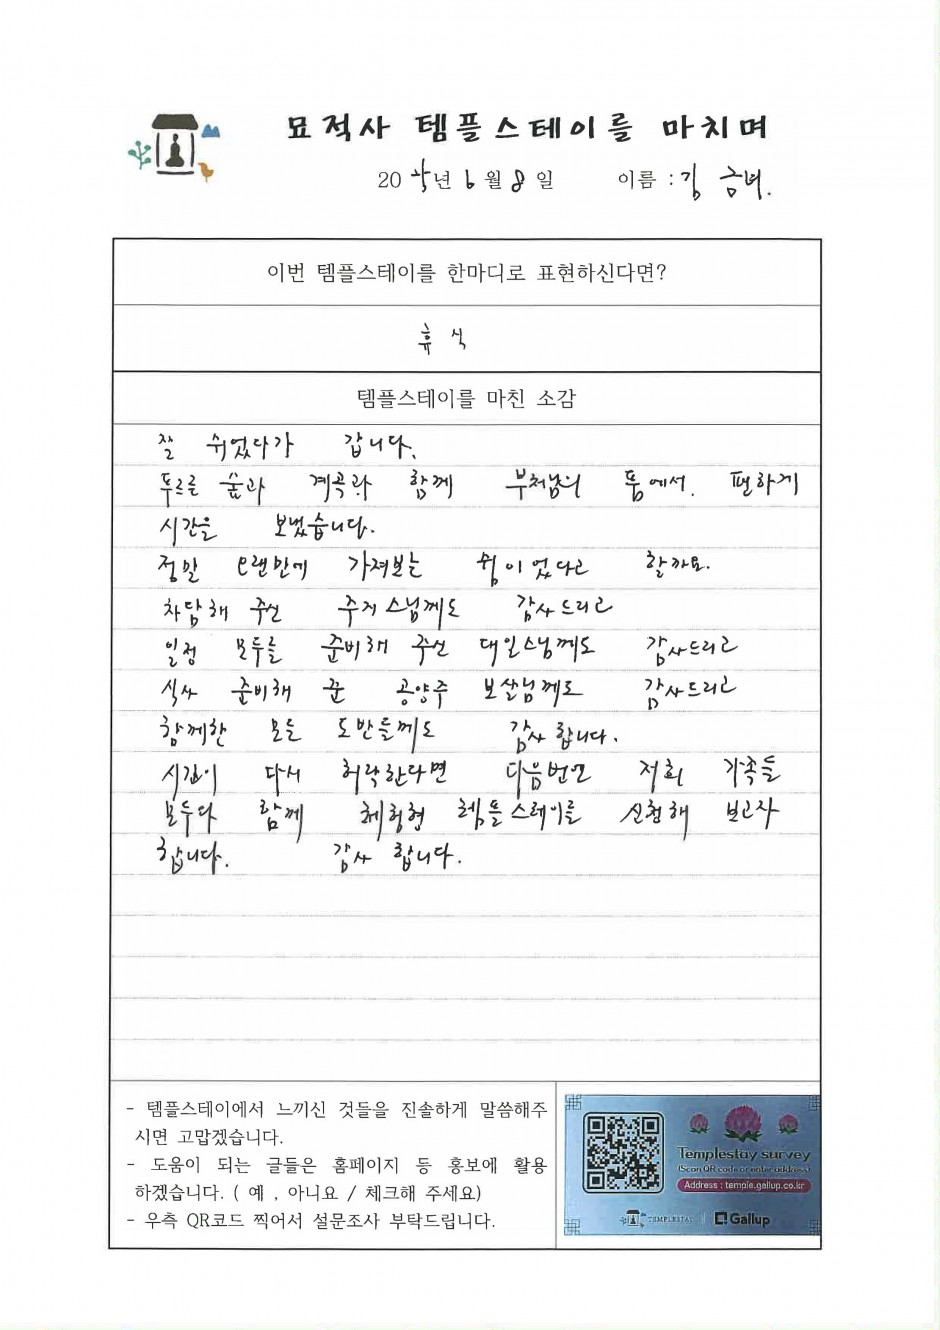 묘적사 템플스테이를 마치며
2025년 6월 8일 이름 : 김금녀.
이번 템플스테이를 한마디로 표현하신다면?
휴식
템플스테이를 마친 소감
잘 쉬었다가 갑니다.
푸르른 숲과 계곡과 함께 부처님의 품에서. 편하게
시간을 보냈습니다.
정말 오랜만에 가져보는 쉼이었다고 할까요.
차담해 주신 주지스님께도 감사드리고
일정 모두를 준비해 주신 대인스님께도 감사드리고
식사 준비해 준 공양주 보살님께도 감사드리고
함께한 모든 도반들께도 감사합니다.
시간이 다시 허락한다면 다음번엔 저희 가족들
모두다 함께 체험형 템플스테이를 신청해 보고자
합니다. 감사합니다.
- 템플스테이에서 느끼신 것들을 진솔하게 말씀해주
시면 고맙겠습니다.
- 도움이 되는 글들은 홈페이지 등 홍보에 활용
하겠습니다. ( 예 , 아니요 / 체크해 주세요)
- 우측 QR코드 찍어서 설문조사 부탁드립니다.
Templestay survey
(Scan QR code or enter address)
Address : temple.gallup.co.kr
TEMPLESTAY Gallup